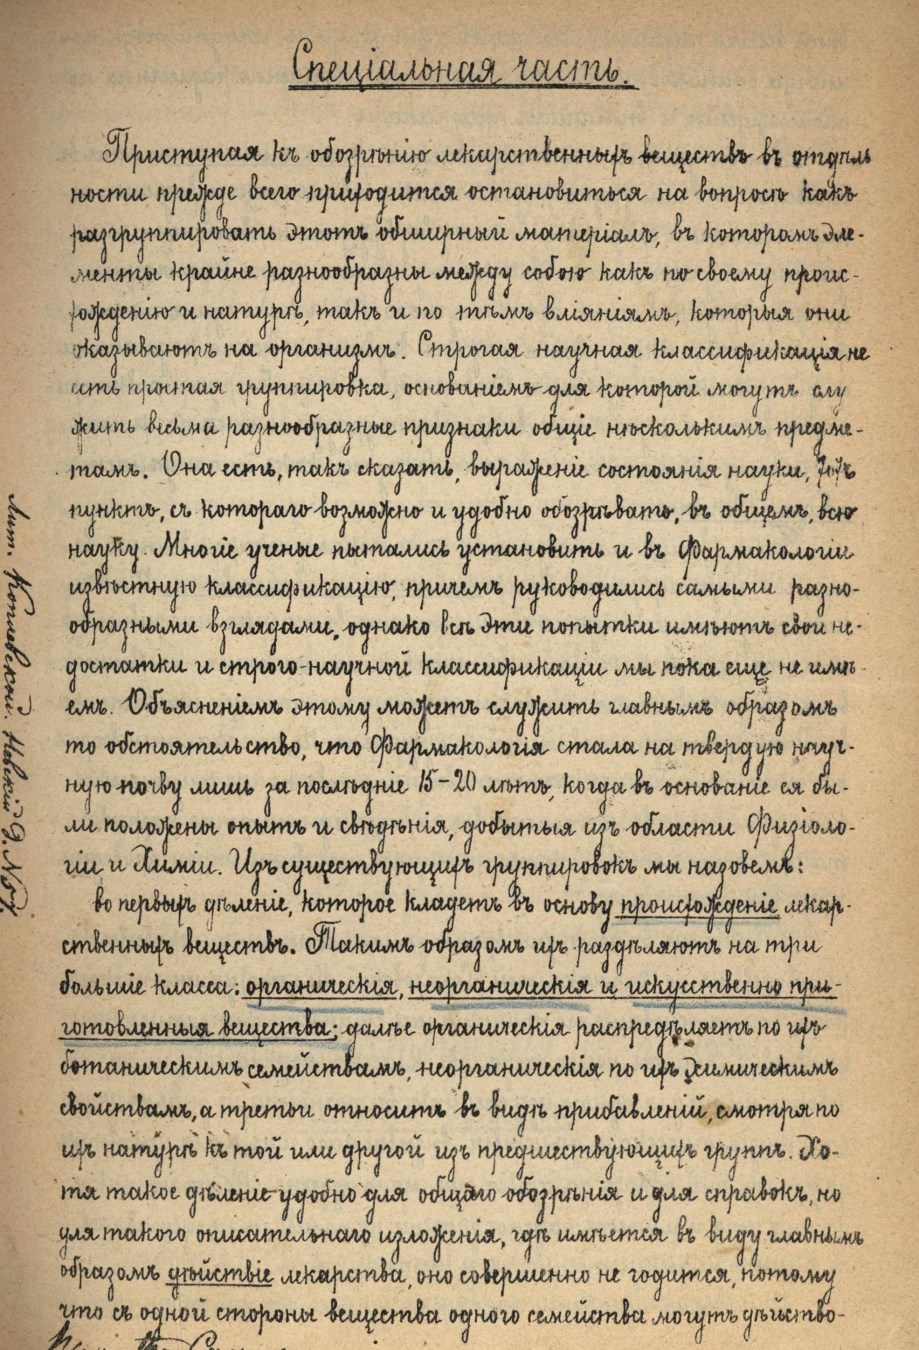 Спеціальная часть.
Приступая къ обозрѣнію лекарственныхъ веществъ въ отдѣль
ности прежде всего приходится остановиться на вопросѣ какъ
разгруппировать этотъ обширный матеріалъ, въ которомъ эле-
менты крайне разнообразны между собою какъ по своему проис-
хожденію и натурѣ, такъ и по тѣмъ вліяніямъ, которыя они
оказываютъ на организмъ. Строгая научная классификація не
есть простая группировка, основаніемъ для которой могутъ слу
жить весьма разнообразные признаки общіе нѣсколькимъ предме-
тамъ. Она есть, такъ сказать, выраженіе состоянія науки, тотъ
пунктъ, съ котораго возможно и удобно обозрѣвать, въ общемъ, всю
науку. Многіе ученые пытались установить и въ Фармакологіи
извѣстную классификацію, причемъ руководились самыми разно-
образными взглядами, однако всѣ эти попытки имѣютъ свои не-
достатки и строго-научной классификаціи мы пока еще не имѣ-
емъ. Объясненіемъ этому можетъ служить главнымъ образомъ
то обстоятельство, что Фармакологія стала на твердую науч-
ную почву лишь за послѣдніе 15-20 лѣтъ, когда въ основаніе ея бы-
ли положены опытъ и свѣдѣнія, добытыя изъ области Физіоло-
гіи и Химіи. Изъ существующихъ группировокъ мы назовемъ:
во первыхъ дѣленіе, которое кладетъ въ основу происхожденіе лекар-
ственныхъ веществъ. Такимъ образомъ ихъ раздѣляютъ на три
большіе класса: органическія, неорганическія и искусственно при-
готовленныя вещества; далѣе органическія распредѣляетъ по ихъ
ботаническимъ семействамъ, неорганическія по ихъ химическимъ
свойствамъ, а третьи относитъ въ видѣ прибавленій, смотря по
ихъ натурѣ къ той или другой изъ предшествующихъ группъ. Хо-
тя такое дѣленіе удобно для общаго обозрѣнія и для справокъ, но
для такого описательнаго изложенія, гдѣ имѣется въ виду главнымъ
образомъ дѣйствіе лекарства, оно совершенно не годится, потому
что съ одной стороны вещества одного семейства могутъ дѣйство-
Лит. Невскій